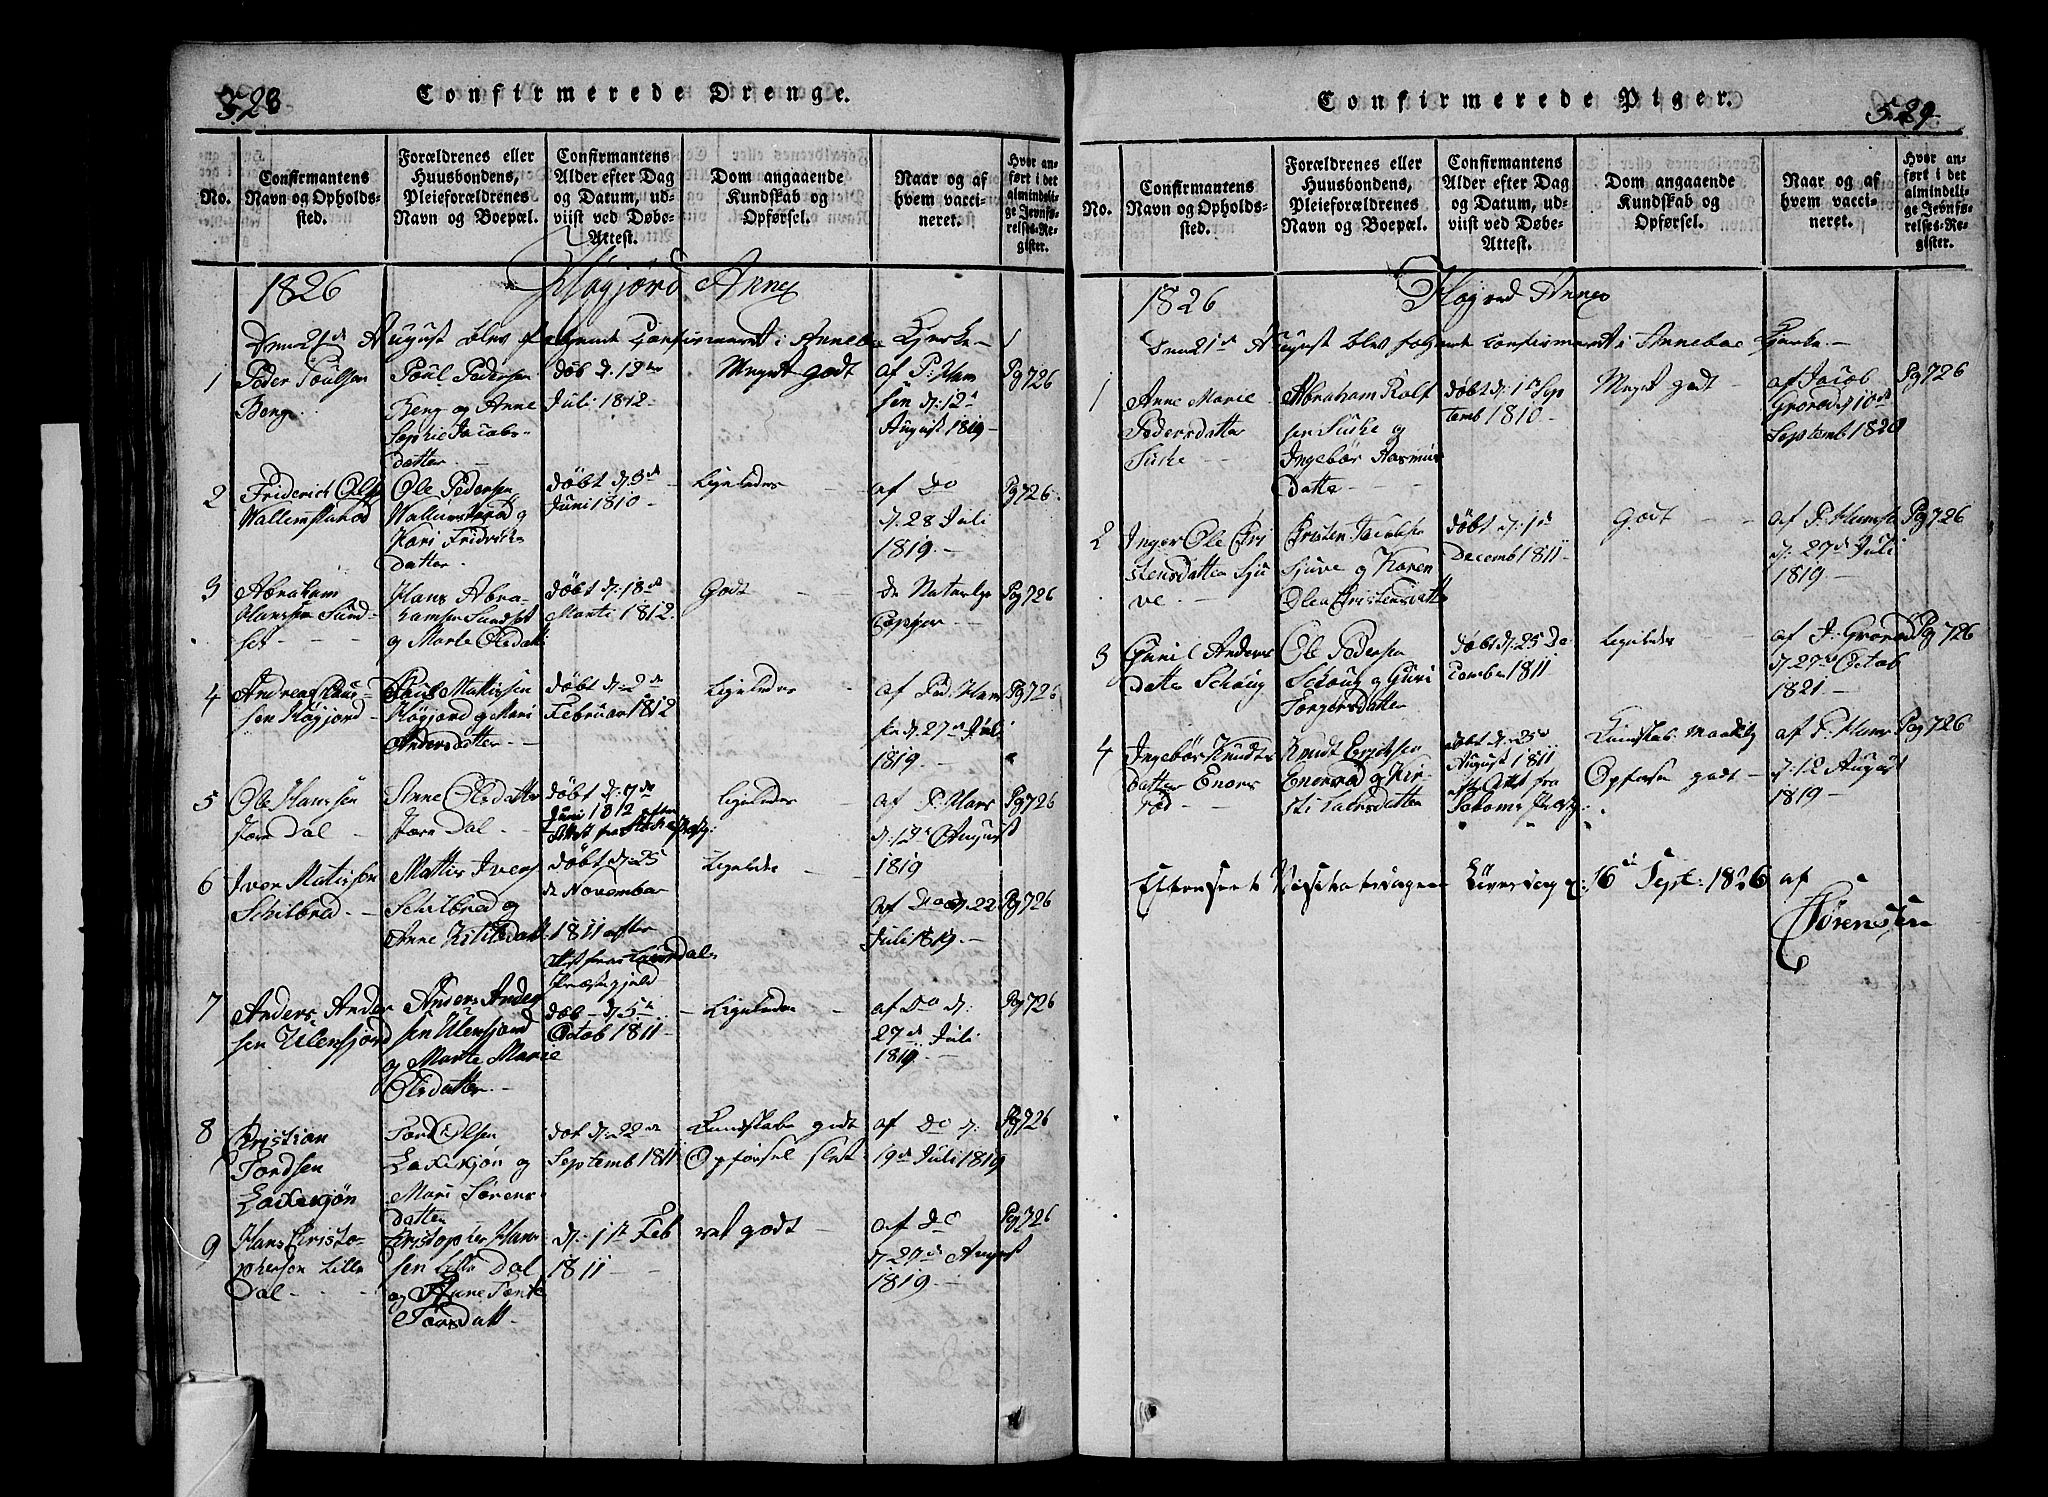 528
Confirmerede Drenge.
No.
Confirmantens
Navn og Opholds-
sted.
Forældrenes eller
Huusbondens,
Pleieforældrenes
Navn og Boepæl.
Confirmantens
Alder efter Dag
og Datum, ud-
viist ved Døbe-
Attest.
Dom angaaende
Kundskab og
Opførsel.
Naar og af
hvem vacci-
neret.
Hvor an-
ført i det
almindeli-
ge Jevnfø-
relses-Re-
gister.
1826
Annex
Den 21de August blev følgende Confirmeret i Annexe Kjerke
1
Peder Poulsen
Berg
Poul Pedersen
Berg og Anne
Sophie Jacobs-
datter
døb d. 12te
Juli 1812
Meget godt
af P. Han
sen d. 12te
August 1819
Pg 726
2
Friderich Olse
Ole Pedersen
Kari Fridrichs
datter
døbt d. 3de
Juni 1810
Ligeledes
af Do
d. 28 Juli
1819
Pg 726
3
Abraham
Hanssen Sund-
set
Hans Abra-
hamsen Sundset
og Marte Olsdatt
døbt d. 18de
Marti 1812
Godt
de Naturlige
Copper
Pg 726
4
Andreas Poul-
sen Høgjord
Poul Mattisen
Høgjord og Mari
Andersdatter
døbt d. 2de
Februar 1812
Ligeledes
af Ped. Han
sen d. 27de Juli
1819
Pg 726
5
Ole Hanssen
Jorndal
Anne Olsdatter
Jorndal
døbt d. 7de
Juni 1812
Ligeledes
af P. Hans
d. 12te August
1819
Pg 726
6
Iver Matissen
Schilbred
Mattis Ivers
Schilbred og
Anne
døbt d. 25
de November
1811 efter
Attest fra Laurdals
Præstegjeld
Ligeledes
af Do d. 22
Juli 1819
Pg 726
7
Anders Ander
sen Ulensjord
Anders Ander
sen Ulensjord
og Marte Marie
Olsdatter
døb d. 5te
Octob 1811
Ligeledes
af Do d.
27de Juli
1819
Pg 726
8
Cristian
Tordsen
Laxesjøn
Tord Olsen
Laxesjøn og
Mari Sørens-
datter
døt d. 22de
Septemb 1811
Kundskabe godt
Opførsel slet
af Do d.
19de Juli 1819
Pg 726
9
Hans Cristo-
phersen Lille
Dal
Cristopher Han
sen Lille Dal
og Anne
Torsdatt
d. 1ste Feb
1811
ret godt
af Do
d. 27de August
1819
Pg 726
529
Confirmerede Piger.
No.
Confirmantens
Navn og Opholds-
sted.
Forældrenes eller
Huusbondens,
Pleieforældrenes
Navn og Boepæl.
Confirmantens
Alder efter Dag
og Datum, ud-
viist ved Døbe-
Attest.
Dom angaaende
Kundskab og
Opførsel.
Naar og af
hvem vacci-
neret.
Hvor an-
ført i det
almindeli-
ge Jevnfø-
relses-Re-
gister.
1826
Annex
Den 21de August blev følgende Confirmeret i Annexe Kjerke
1
Anne Marie
Pedersdatter
Abraham Rolf
sen
og
Ingebør Rasmus
datter
døbt d. 1te Sep
temb 1810
Meget godt
af Jacob
Grorød d. 10de
Septemb 1820
Pg 726
2
Inger Ole Cri
stensdatter Sju
ve
Cristen Jacobsen
Sjuve og Karen
Olea Cristensdatter
døbt d. 1te
Decemb 1811
Godt
af P. Hanse
d. 27de Juli
1819
Pg 726
3
Guri Anders
datter Schoug
Ole Pedersen
Schoug og Guri
Torgersdatter
døbt d. 25 De
cember 1811
Ligeledes
af J. Grorød
d. 27de Octob
1821
Pg 726
4
Ingebør Knudts
datter Eners
rød
Knudt Erichsen
Enersrød og Kir-
sti Larsdatter
døbt d. 25de
August 1811
efter Attest fra
Kundskab Maadelig
Opførsen godt
af P. Hans
d. 12 August
1819
Pg 726
Efterseet Visitatsdagen Løverdag d. 16de Sept: 1826 af
Sørenssen